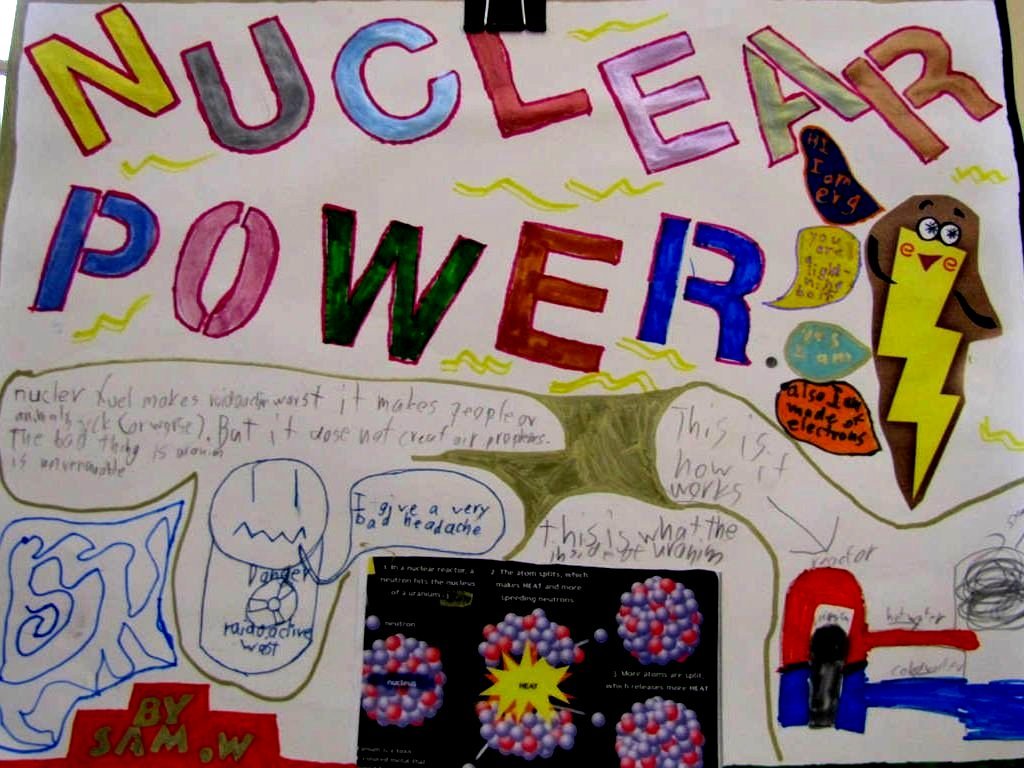 NUCLEAR
POWER.
HI
I am
erg
you
are
a
light-
ning
bolt
yes
I am
also I am
made of
electrons
nucler fuel makes worst it makes people or
animals (or worse). But it dose not creat air proplems.
The bad thing is uranim
is unrenuable.
This is
how it
works
I give a very
bad headache
Danger
radioactive
wast
this is what the
uranim
reactor
hot water
BY
SAM.W
1. In a nuclear reactor, a
neutron hits the nucleus
of a uranium
neutron
nucleus
2. The atom splits, which
makes HEAT and more
speeding neutrons.
HEAT
3. More atoms are split,
which releases more HEAT